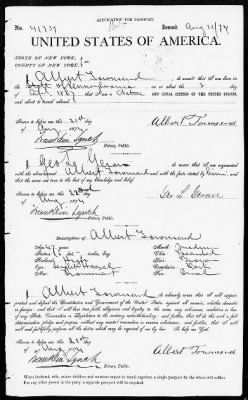 APPLICATION FOR PASSPORT.
No. 41739 Issued Aug 21/74
UNITED STATES OF AMERICA.
STATE OF NEW YORK,
COUNTY OF NEW YORK,
I Albert Townsend do swear that I was born in
State of Pennsylvania on or about the day
that I am a Native AND LOYAL CITIZEN OF THE UNITED STATES,
and about to travel abroad.
Sworn to before me this 21st day
of Aug 1874 Albert Townsend
Franklin Lynch
Notary Public.
I Geo. L.
Albert Townsend and that the facts stated by him in
are true to the best of my knowledge and belief.
Sworn to before me this
of Aug 1874 Geo L
Franklin Lynch
Notary Public.
Description of Albert Townsend
Age: 47 years
Mouth: Medium
Stature: 5 feet inches, Eng.
Chin: Bearded
Forehead: High
Hair: Brown
Eyes: Hazel
Complexion: Dark
Nose:
Face:
I Albert Townsend do solemnly swear that I will support,
protect and defend the Constitution and Government of the United States against all enemies, whether domestic
or foreign; and that I will bear true faith, allegiance and loyalty to the same, any ordinance, resolution or law
of any State Convention or Legislature to the contrary notwithstanding; and further, that I do this with a full
determination, pledge and purpose, without any mental reservation or evasion whatsoever; and further, that I will
well and faithfully perform all the duties which may be required of me by law. So help me God.
Sworn to before me this 21st
day of Aug 1874 Albert Townsend
Franklin Lynch
Notary Public.
When husband, wife, minor children and servants expect to travel together, a single passport for the whole will suffice.
For any other person in the party a separate passport will be required.